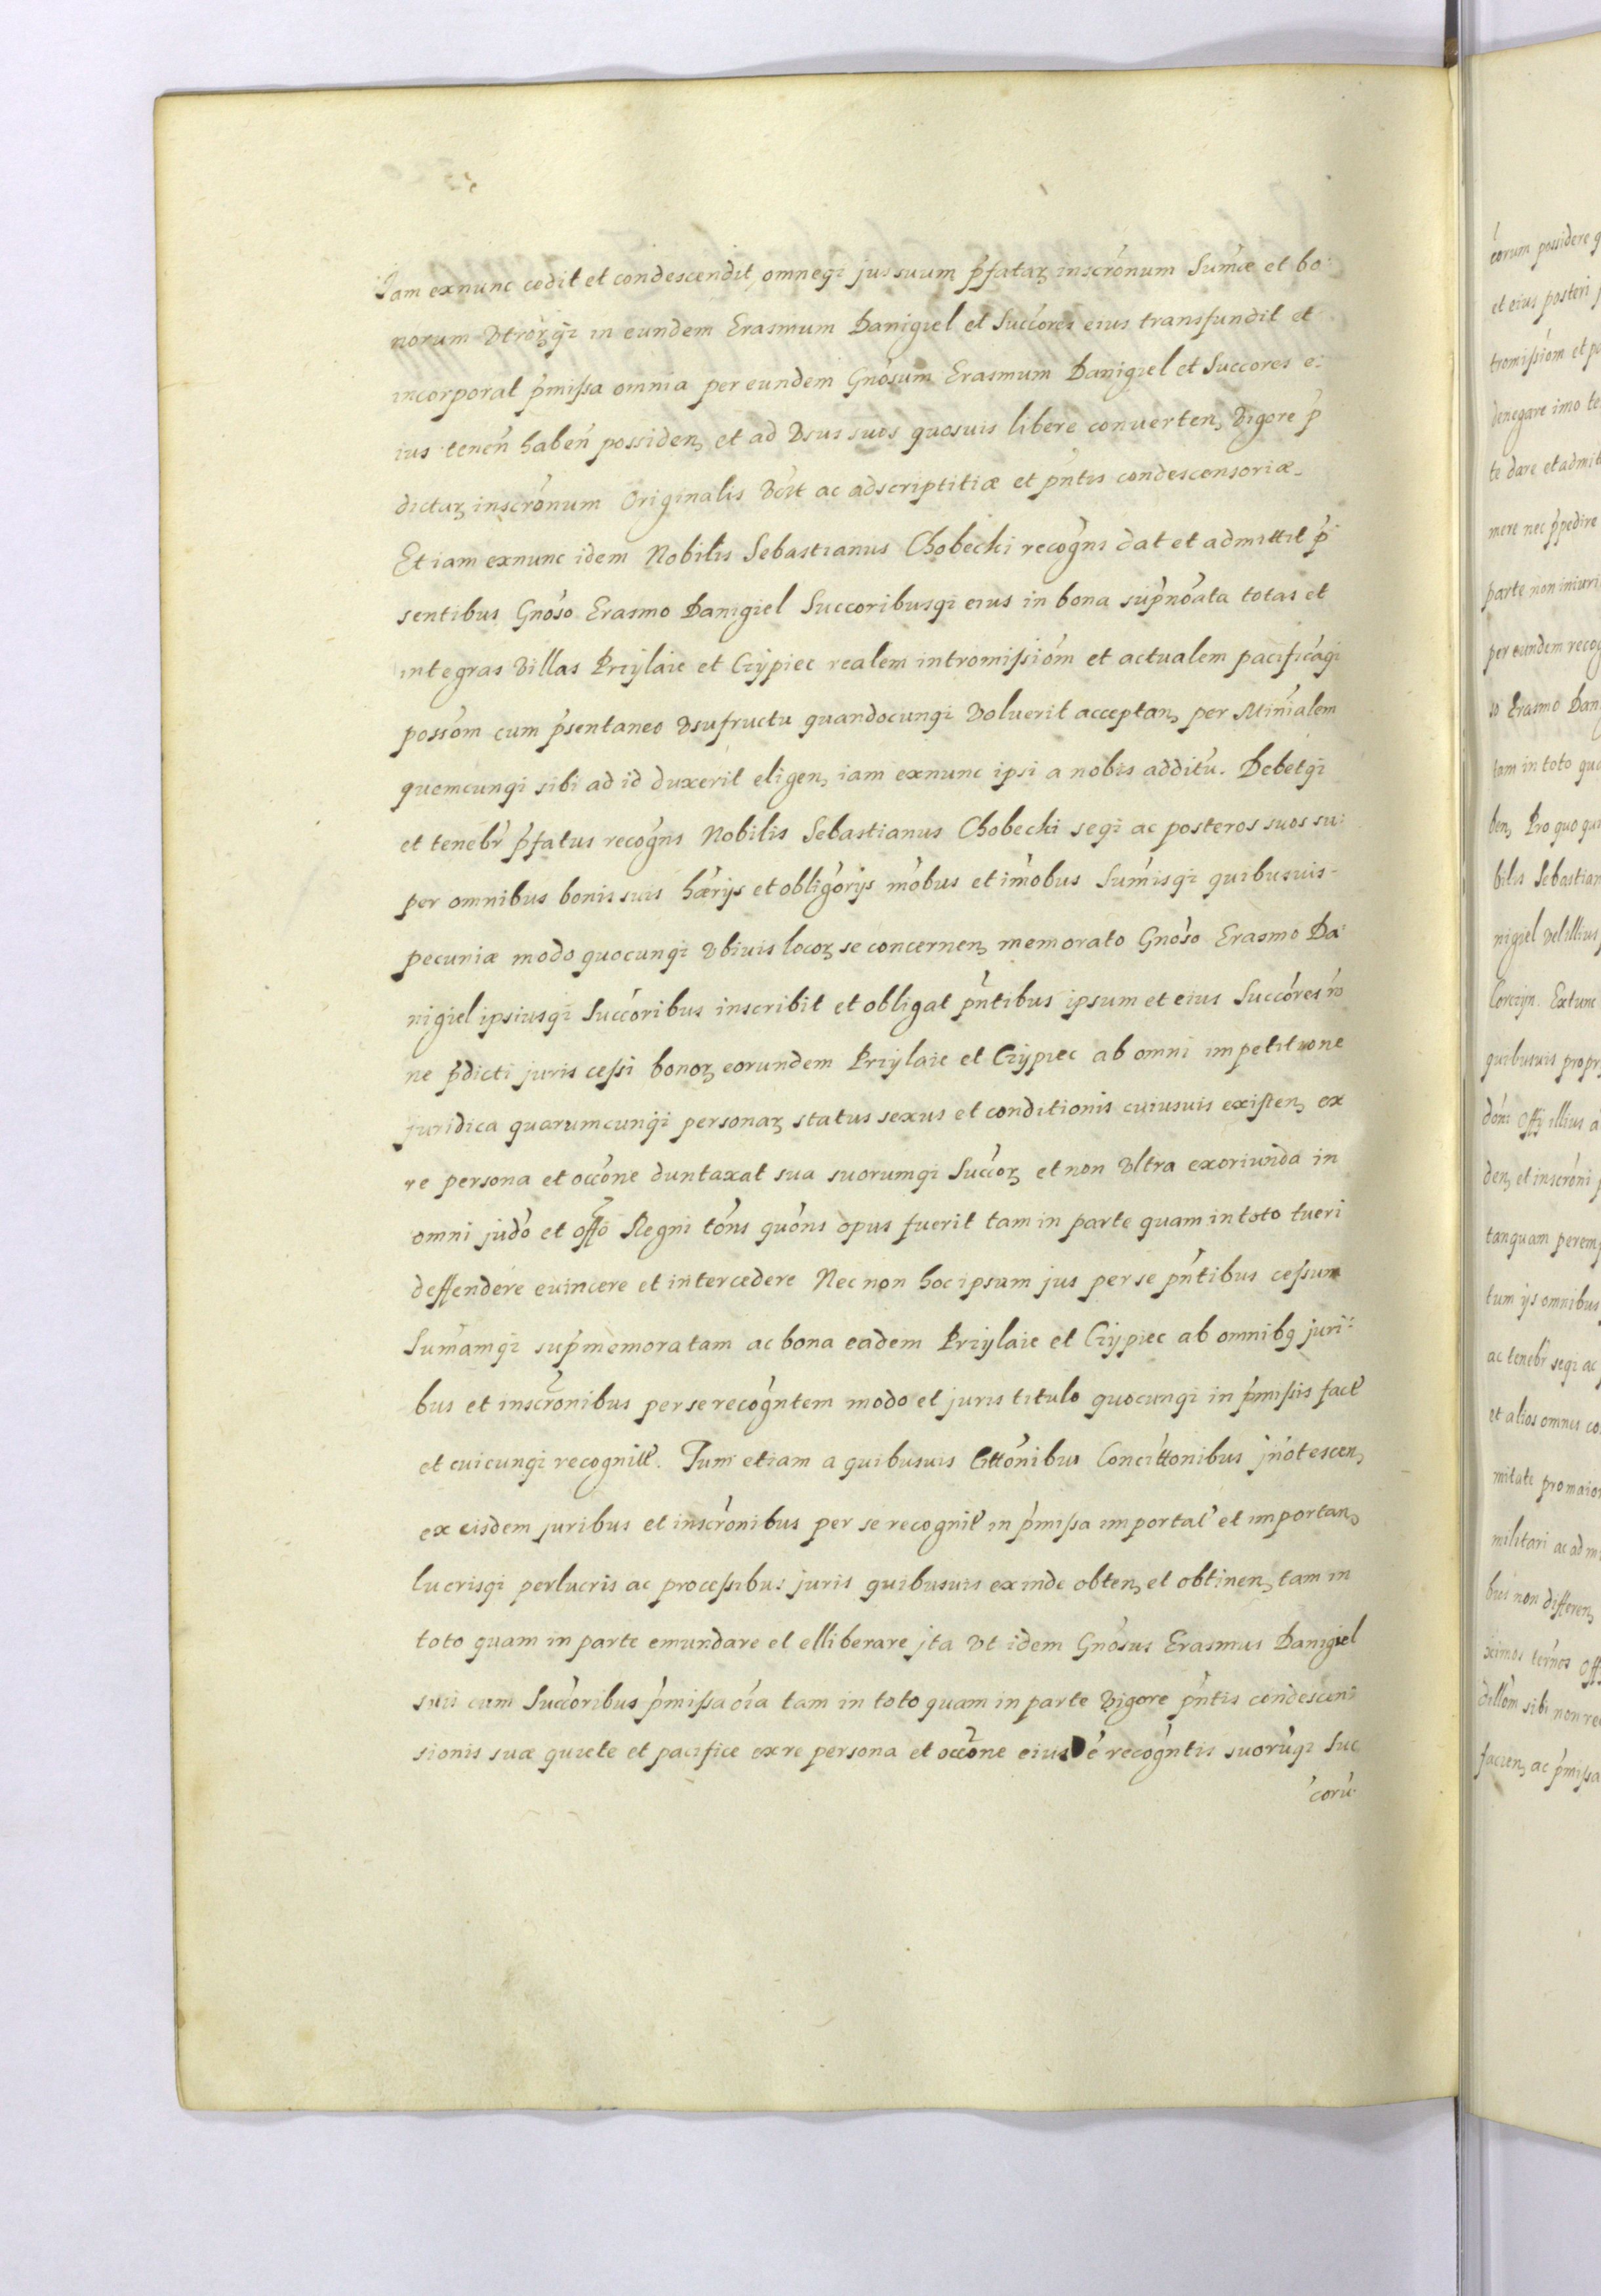 Iam exnunc cedit et condescendit, omnegȝ jus suum p̃fataꝝ inscr̃onum Sum̃æ et bo:
norum vtroꝝgȝ in eundem Erasmum Danigiel et Succ̃ores eius transfundit et
incorporat p̃missa omnia per eundem Gnõsum Erasmum Danigiel et Succores e:
ius teneñ habeñ possideñ et ad vsus suos quosuis libere conuerteñ vigore p̃
dictaꝝ inscr̃onum Originalis vc̃ȝt ac adscriptitiæ et pñtis condescensoriæ
Et iam exnunc idem Nobilis Sebastianus Chobecki recog̃ns dat et admittit p̃
sentibus Gnõso Erasmo Danigiel Succoribusgȝ eius in bona sup̃noãta totas et
integras villas Przÿlaie et Czÿpiec realem intromissiõm et actualem pacificãgȝ
possõm cum p̃sentaneo vsufructu quandocungȝ voluerit acceptañ per Miniãlem
quemcungȝ sibi ad id duxerit eligeñ iam exnunc ipsi a nobis additũ. Debetgȝ
et tenebr̃ p̃fatus recog̃ns Nobilis Sebastianus Chobecki segȝ ac posteros suos su:
per omnibus bonis suis hæ̃rijs et obligõrijs mõbus et im̃obus Sum̃isgȝ quibusuis
pecuniæ modo quocungȝ vbiuis locoꝝ se concerneñ memorato Gnõso Erasmo Da:
nigiel ipsiusgȝ Succ̃oribus inscribit et obligat pñtibus ipsum et eius Succ̃ores rõ
ne p̃dicti juris cessi bonoꝝ eorundem Przÿlaie et Czÿpiec ab omni impetitione
juridica quarumcungȝ personaꝝ status sexus et conditionis cuiusuis existeñ ex
re persona et occ̃one duntaxat sua suorumgȝ Succ̃oꝝ et non vltra exoriunda in
omni judõ et off̃o Regni tõns quõns opus fuerit tam in parte quam in toto tueri
deffendere euincere et intercedere Nec non hoc ipsum jus per se pñtibus cessum
Sum̃amgȝ sup̃memoratam ac bona eadem Przÿlaie et Czÿpiec ab omnibꝯ juri:
bus et inscr̃onibus per se recog̃ntem modo et juris titulo quocungȝ in p̃missis fact̃
et cuicungȝ recognitt̃. Tum etiam a quibusuis Citt̃onibus Concitt̃onibus jnõtesceñ
ex eisdem juribus et inscr̃onibus per se recognit̃ in p̃missa importat̃ et importañ
lucrisgȝ perlucris ac processibus juris quibusuis exinde obteñ et obtineñ tam in
toto quam in parte emundare et elliberare jta vt idem Gnõsus Erasmus Danigiel
suis cum Succ̃oribus p̃missa oĩa tam in toto quam in parte vigore pñtis condescen:
sionis suæ quiete et pacifice ex re persona et occ̃one eiusdẽ recog̃ntis suorũgȝ Suc
c̃orũ
eorum possidere
et eius posteri
tromissiõm et
denegare imo
te dare et
mere nec p̃pedire
parte non
per eundem
so Erasmo
tam in toto
beñ Pro quo
bilis
nigiel vel illius
Extunc
quibusuis
illius
deñ et inscr̃oni
tanquam
tum ijs omnibus
ac tenebr̃ segȝ ac
et alios omnes
mitate pro
militari ac
bus non differeñ
ximos
sibi non
facieñ ac p̃missa